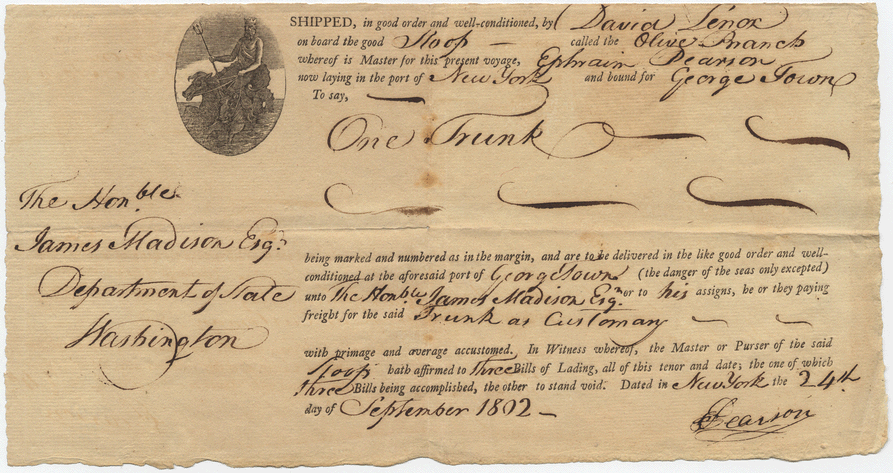 SHIPPED, in good order and well-conditioned, by David Lenox
on board the good Sloop called the Olive Branch
whereof is Master for this present voyage, Ephraim Pearson
now laying in the port of New York and bound for George Town
To say,
One Trunk
The Hon.ble
James Madison Esq.r
Department of State
Washington
being marked and numbered as in the margin, and are to be delivered in the like good order and well-
conditioned at the aforesaid port of George Town (the danger of the seas only excepted)
unto The Honble James Madison Esq.r or to his assigns, he or they paying
freight for the said Trunk as Customary
with primage and average accustomed. In Witness whereof, the Master or Purser of the said
Sloop hath affirmed to three Bills of Lading, all of this tenor and date; the one of which
three Bills being accomplished, the other to stand void. Dated in New York the 24th
day of September 1802
EPearson